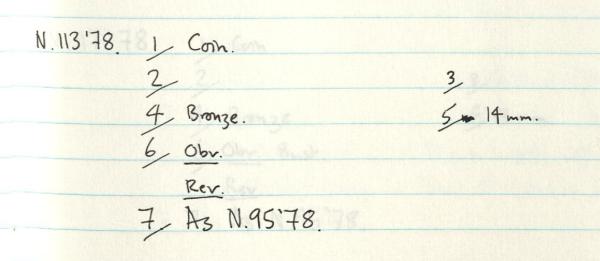 N.113'78. 1/ Coin.
2/ 3/
4/ Bronze. 5/ 14mm.
6/ Obv.
Rev.
7/ As N.95'78.